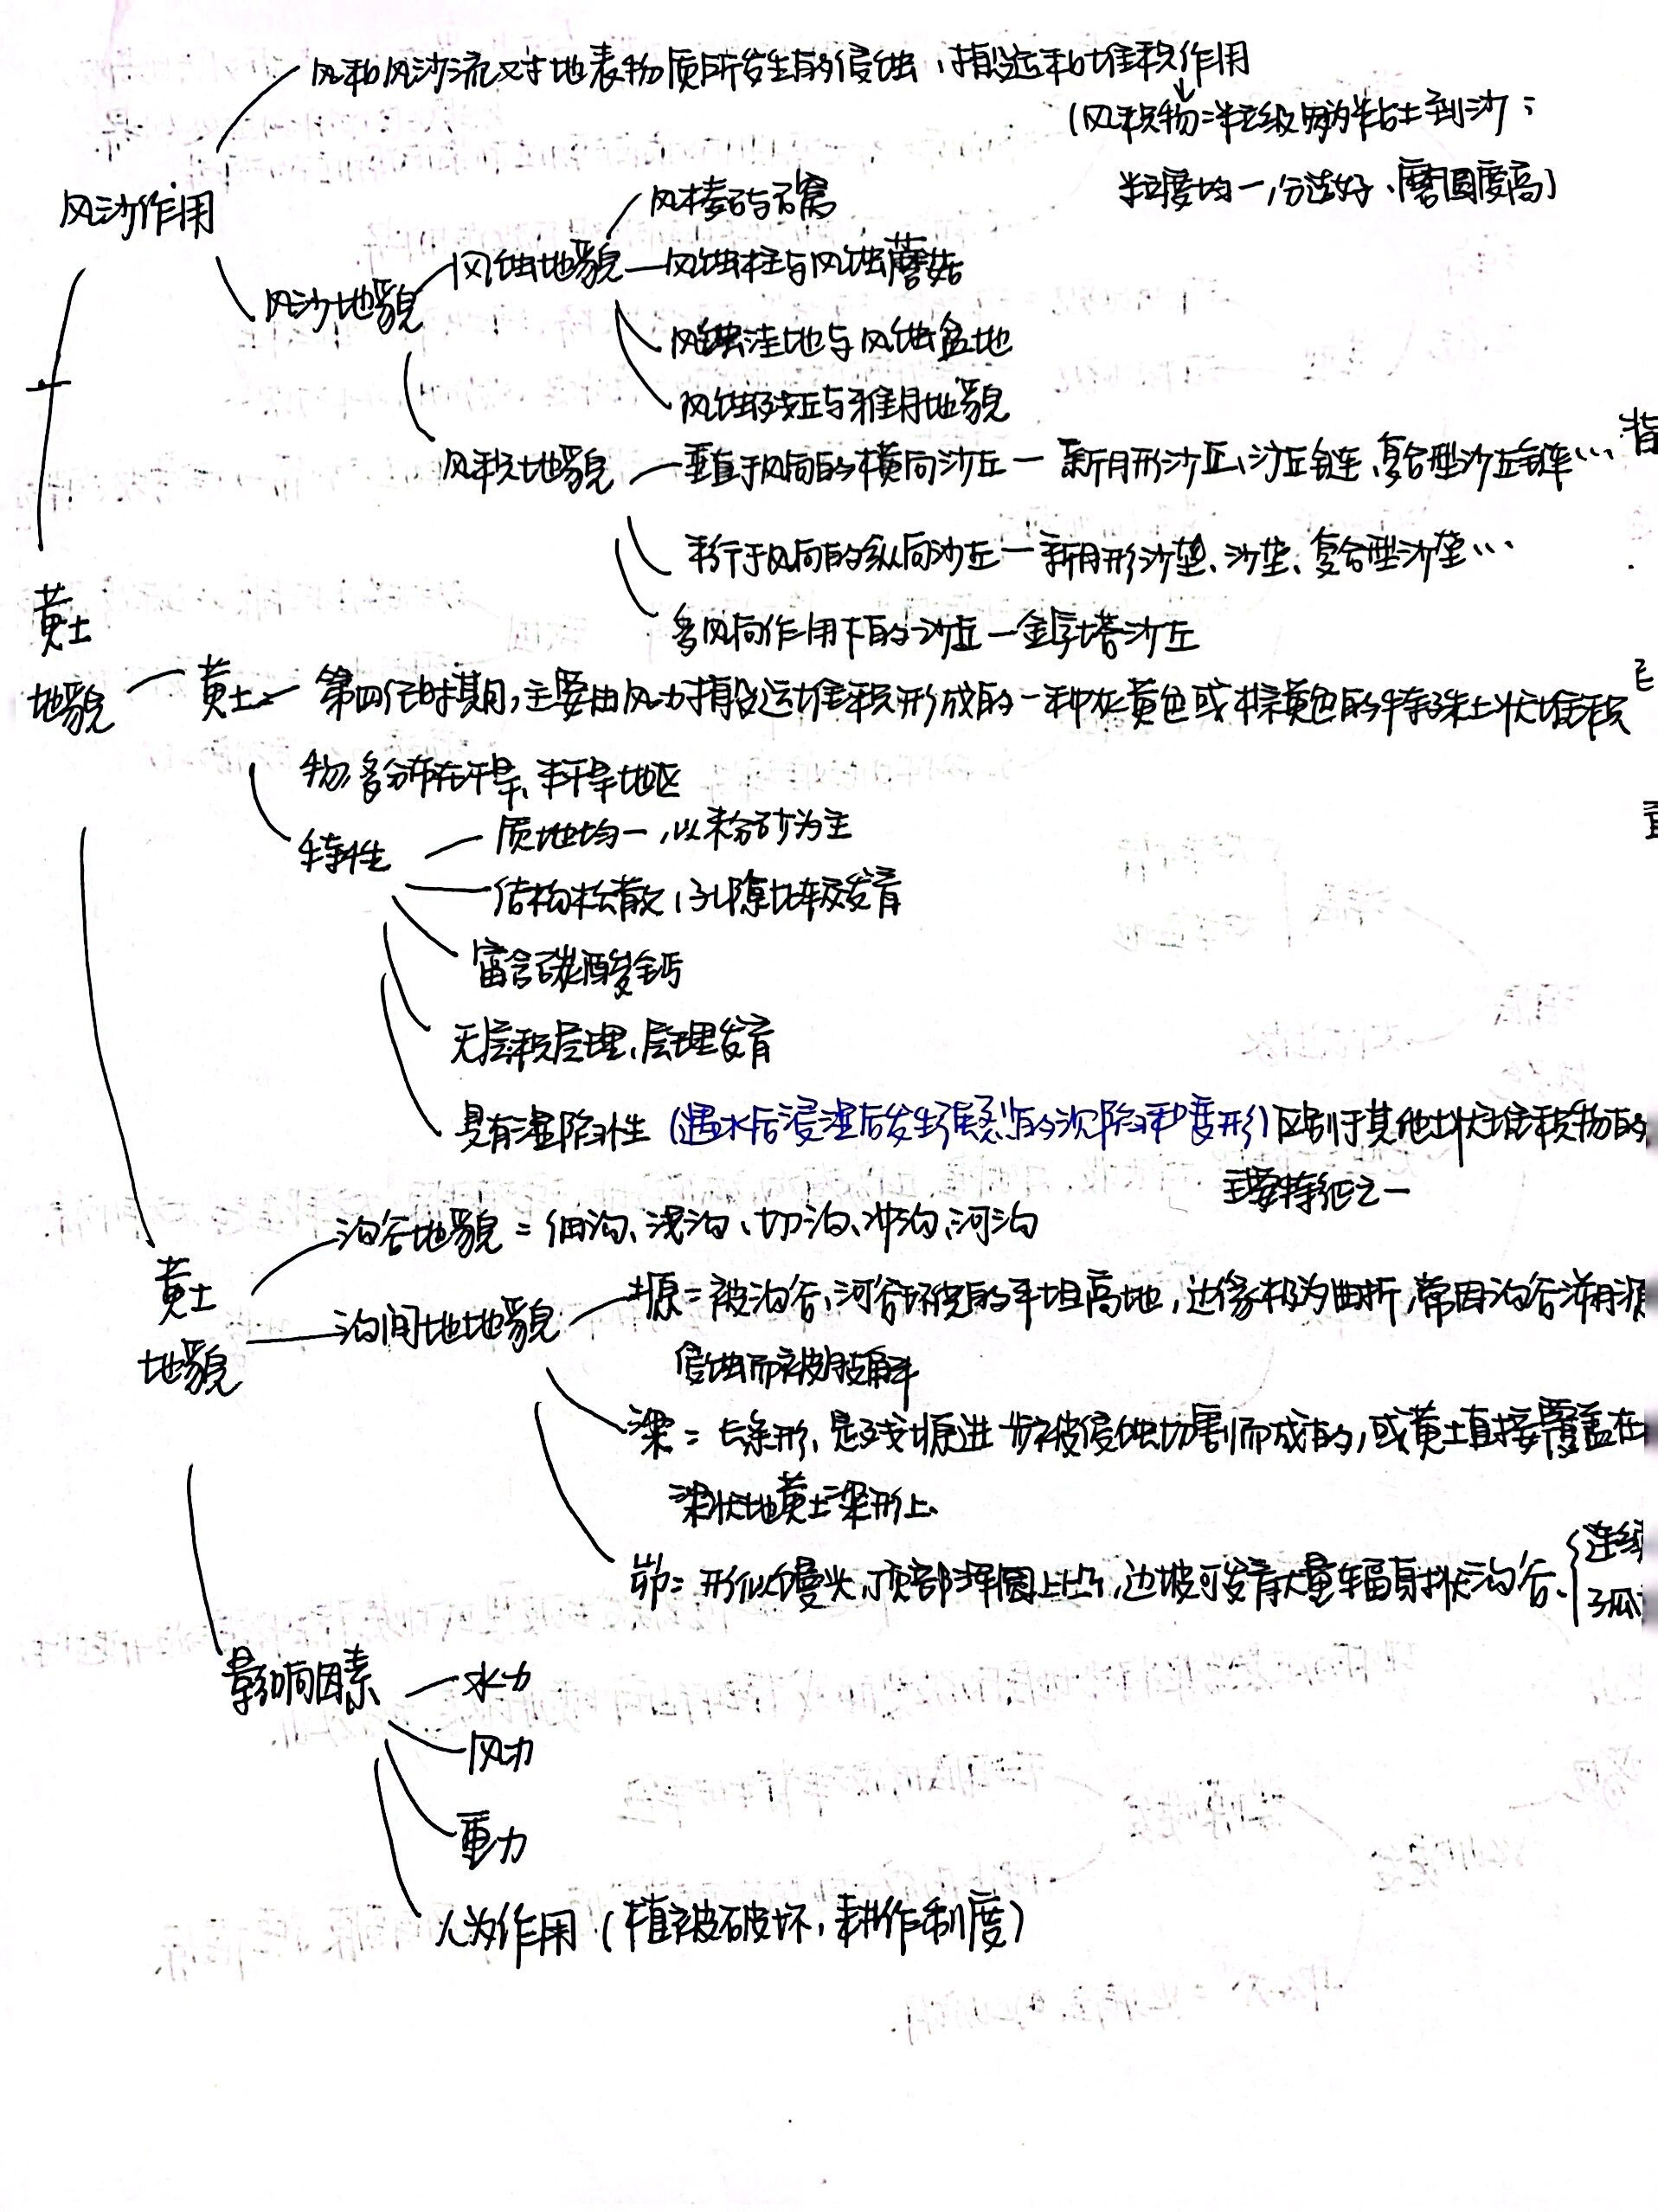 风和风沙流对地表物质所发生的侵蚀、搬运和堆积作用
(风积物:粒级为粘土到沙;
粒度均一,分选好、磨圆度高)
风沙作用
风沙地貌
风蚀地貌
风棱石与石窝
风蚀柱与风蚀蘑菇
风蚀洼地与风蚀盆地
风蚀残丘与雅丹地貌
风积地貌
垂直于风向的横向沙丘 — 新月形沙丘、沙丘链、复合型沙丘链…
平行于风向的纵向沙丘 — 新月形沙垄、沙垄、复合型沙垄…
多风向作用下的沙丘 — 金字塔沙丘
+
黄土
地貌
黄土 — 第四纪时期,主要由风力搬运堆积形成的一种灰黄色或棕黄色的特殊土状堆积
物,多分布在干旱、半干旱地区
特性
质地均一,以粉砂为主
结构松散,孔隙比较发育
富含碳酸钙
无层积层理、层理发育
具有湿陷性(遇水后浸湿后发生强烈的沉陷和变形)区别于其他土状堆积物的
主要特征之一
黄土
地貌
沟谷地貌:细沟、浅沟、切沟、冲沟、河沟
沟间地地貌
塬:被沟谷、河谷环绕的平坦高地,边缘极为曲折,常因沟谷溯源
侵蚀而被肢解
梁:长条形,是残塬进一步被侵蚀切割而成的,或黄土直接覆盖在
梁状地黄土梁形上、
峁:形似馒头,顶部浑圆上凸,边坡可发育大量辐射状沟谷、{连续
孤
影响因素
水力
风力
重力
人为作用(植被破坏,耕作制度)